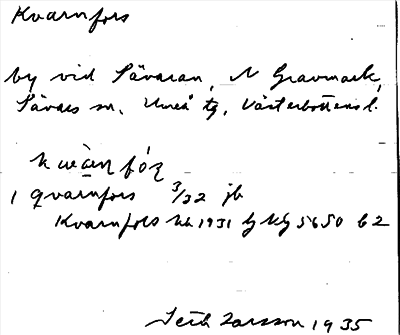 Kvarnfors
by vid Sävaran, N Gravmark,
Sävars sn, Umeå tg, Västerbottens l.
1 qvarnfors 3/32 jb
Kvarnfors 1931 5650 62
Seth Larsson 1935